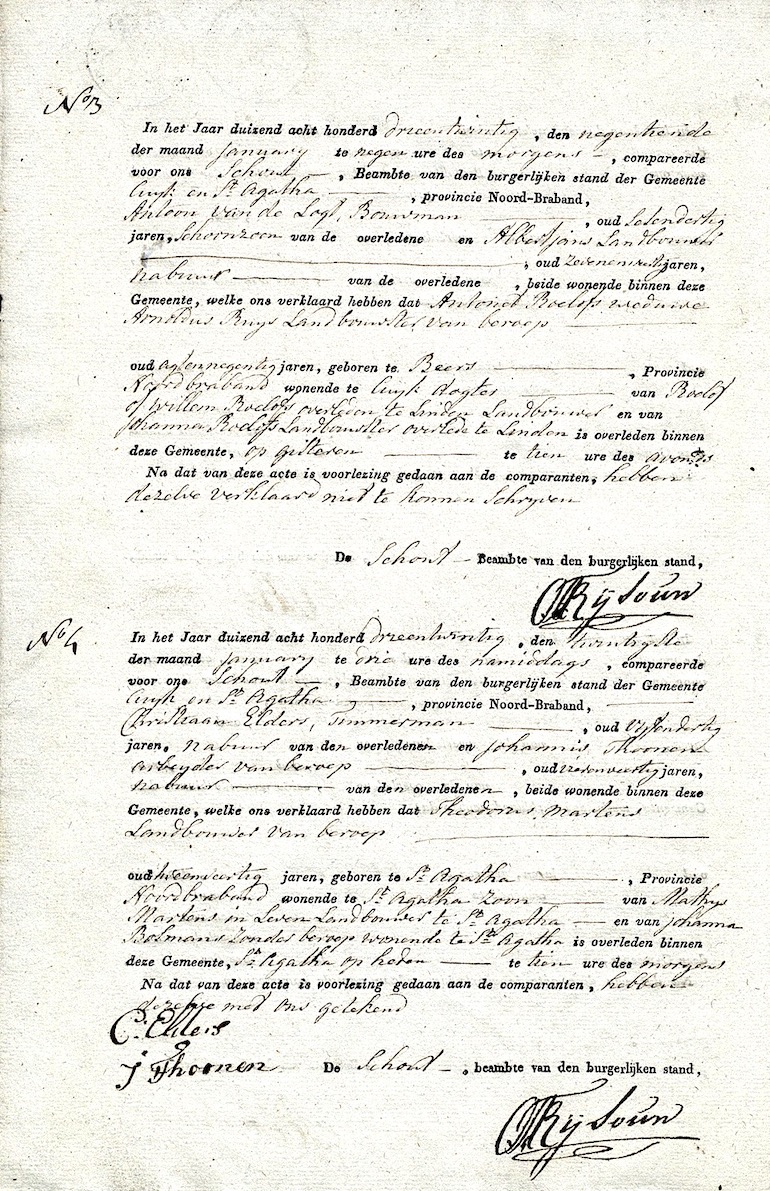 No 3
In het Jaar duizend acht honderd drieentwintig, den negentiende
der maand January te negen ure des morgens, compareerde
voor ons Schout, Beambte van den burgerlijken stand der Gemeente
Cuyk en St. Agatha, provincie Noord-Braband,
Antoon van de Logt, Bouwman, oud Sesendertig
jaren, Schoonzoon van de overledene en Albert Jans Landbouwer
, oud Zevenenveertig jaren,
nabuur van de overledene, beide wonende binnen deze
Gemeente, welke ons verklaard hebben dat Antonet Roelofs weduwe
Arnoldus Ruys Landbouwster van beroep
oud agtennegentig jaren, geboren te Beers, Provincie
Noordbraband wonende te Cuyk dogter van Roelof
of Willem Roelofs overleden te Linden Landbouwer en van
Johanna Roelofs Landbouwster overlede te Linden is overleden binnen
deze Gemeente, op gisteren te tien ure des avonds
Na dat van deze acte is voorlezing gedaan aan de comparanten, hebben
dezelve verklaard niet te konnen Schryven
De Schout Beambte van den burgerlijken stand,
No 4
In het Jaar duizend acht honderd drieentwintig, den twintigste
der maand January te drie ure des namiddags, compareerde
voor ons Schout, Beambte van den burgerlijken stand der Gemeente
Cuyk en St. Agatha, provincie Noord-Braband,
Christiaan Elders, Timmerman, oud Vyfendertig
jaren, nabuur van den overledenen en Johannis Thoonen
arbeyder van beroep, oud vierenveertig jaren,
nabuur van den overledenen, beide wonende binnen deze
Gemeente, welke ons verklaard hebben dat Theodorus Martens
Landbouwer van beroep
oud tweenveertig jaren, geboren te St. Agatha, Provincie
Noordbraband wonende te St. Agatha Zoon van Mathys
Martens in Leven Landbouwer te St. Agatha en van Johanna
Bolmans Zonder beroep wonende te St. Agatha is overleden binnen
deze Gemeente, St. Agatha op heden te tien ure des morgens
Na dat van deze acte is voorlezing gedaan aan de comparanten, hebben
dezelve met ons getekend
C. Elders
J Thoonen De Schout, beambte van den burgerlijken stand,